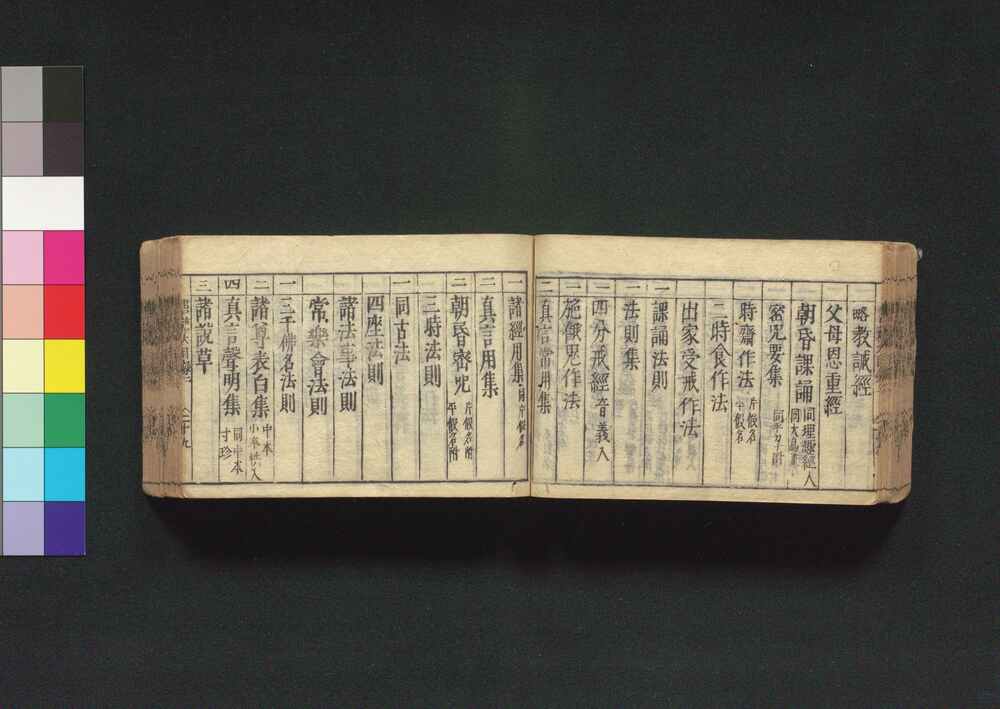 略教誡經
父母恩重經
朝昏課誦 同理趣經入
一 密咒要集
一 時齋作法 片假名 平假名
二時食作法
出家受戒作法
一 課誦法則
一 法則集
一 四分戒經音義入
一 施餓鬼作法
二 真言常用集
一 諸經用集
二 真言用集
二 朝昏密咒 片假名附 平假名附
三時法則
一 同古法
四座法則
諸法事法則
常樂會法則
一 三千佛名法則
二 諸尊表白集 中本 入
四 真言聲明集 同中本 寸珍
三 諸説草
二十九